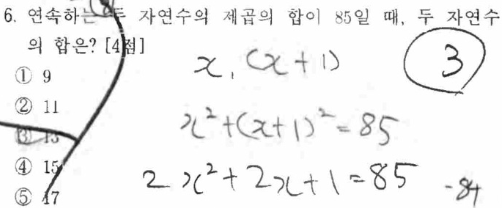 6. 연속하는 두 자연수의 제곱의 합이 85일 때, 두 자연수
의 합은? [4점]
x, (x+1)
3
① 9
② 11
x²+(x+1)²=85
③ 13
④ 15
2x²+2x+1=85 -84
⑤ 17